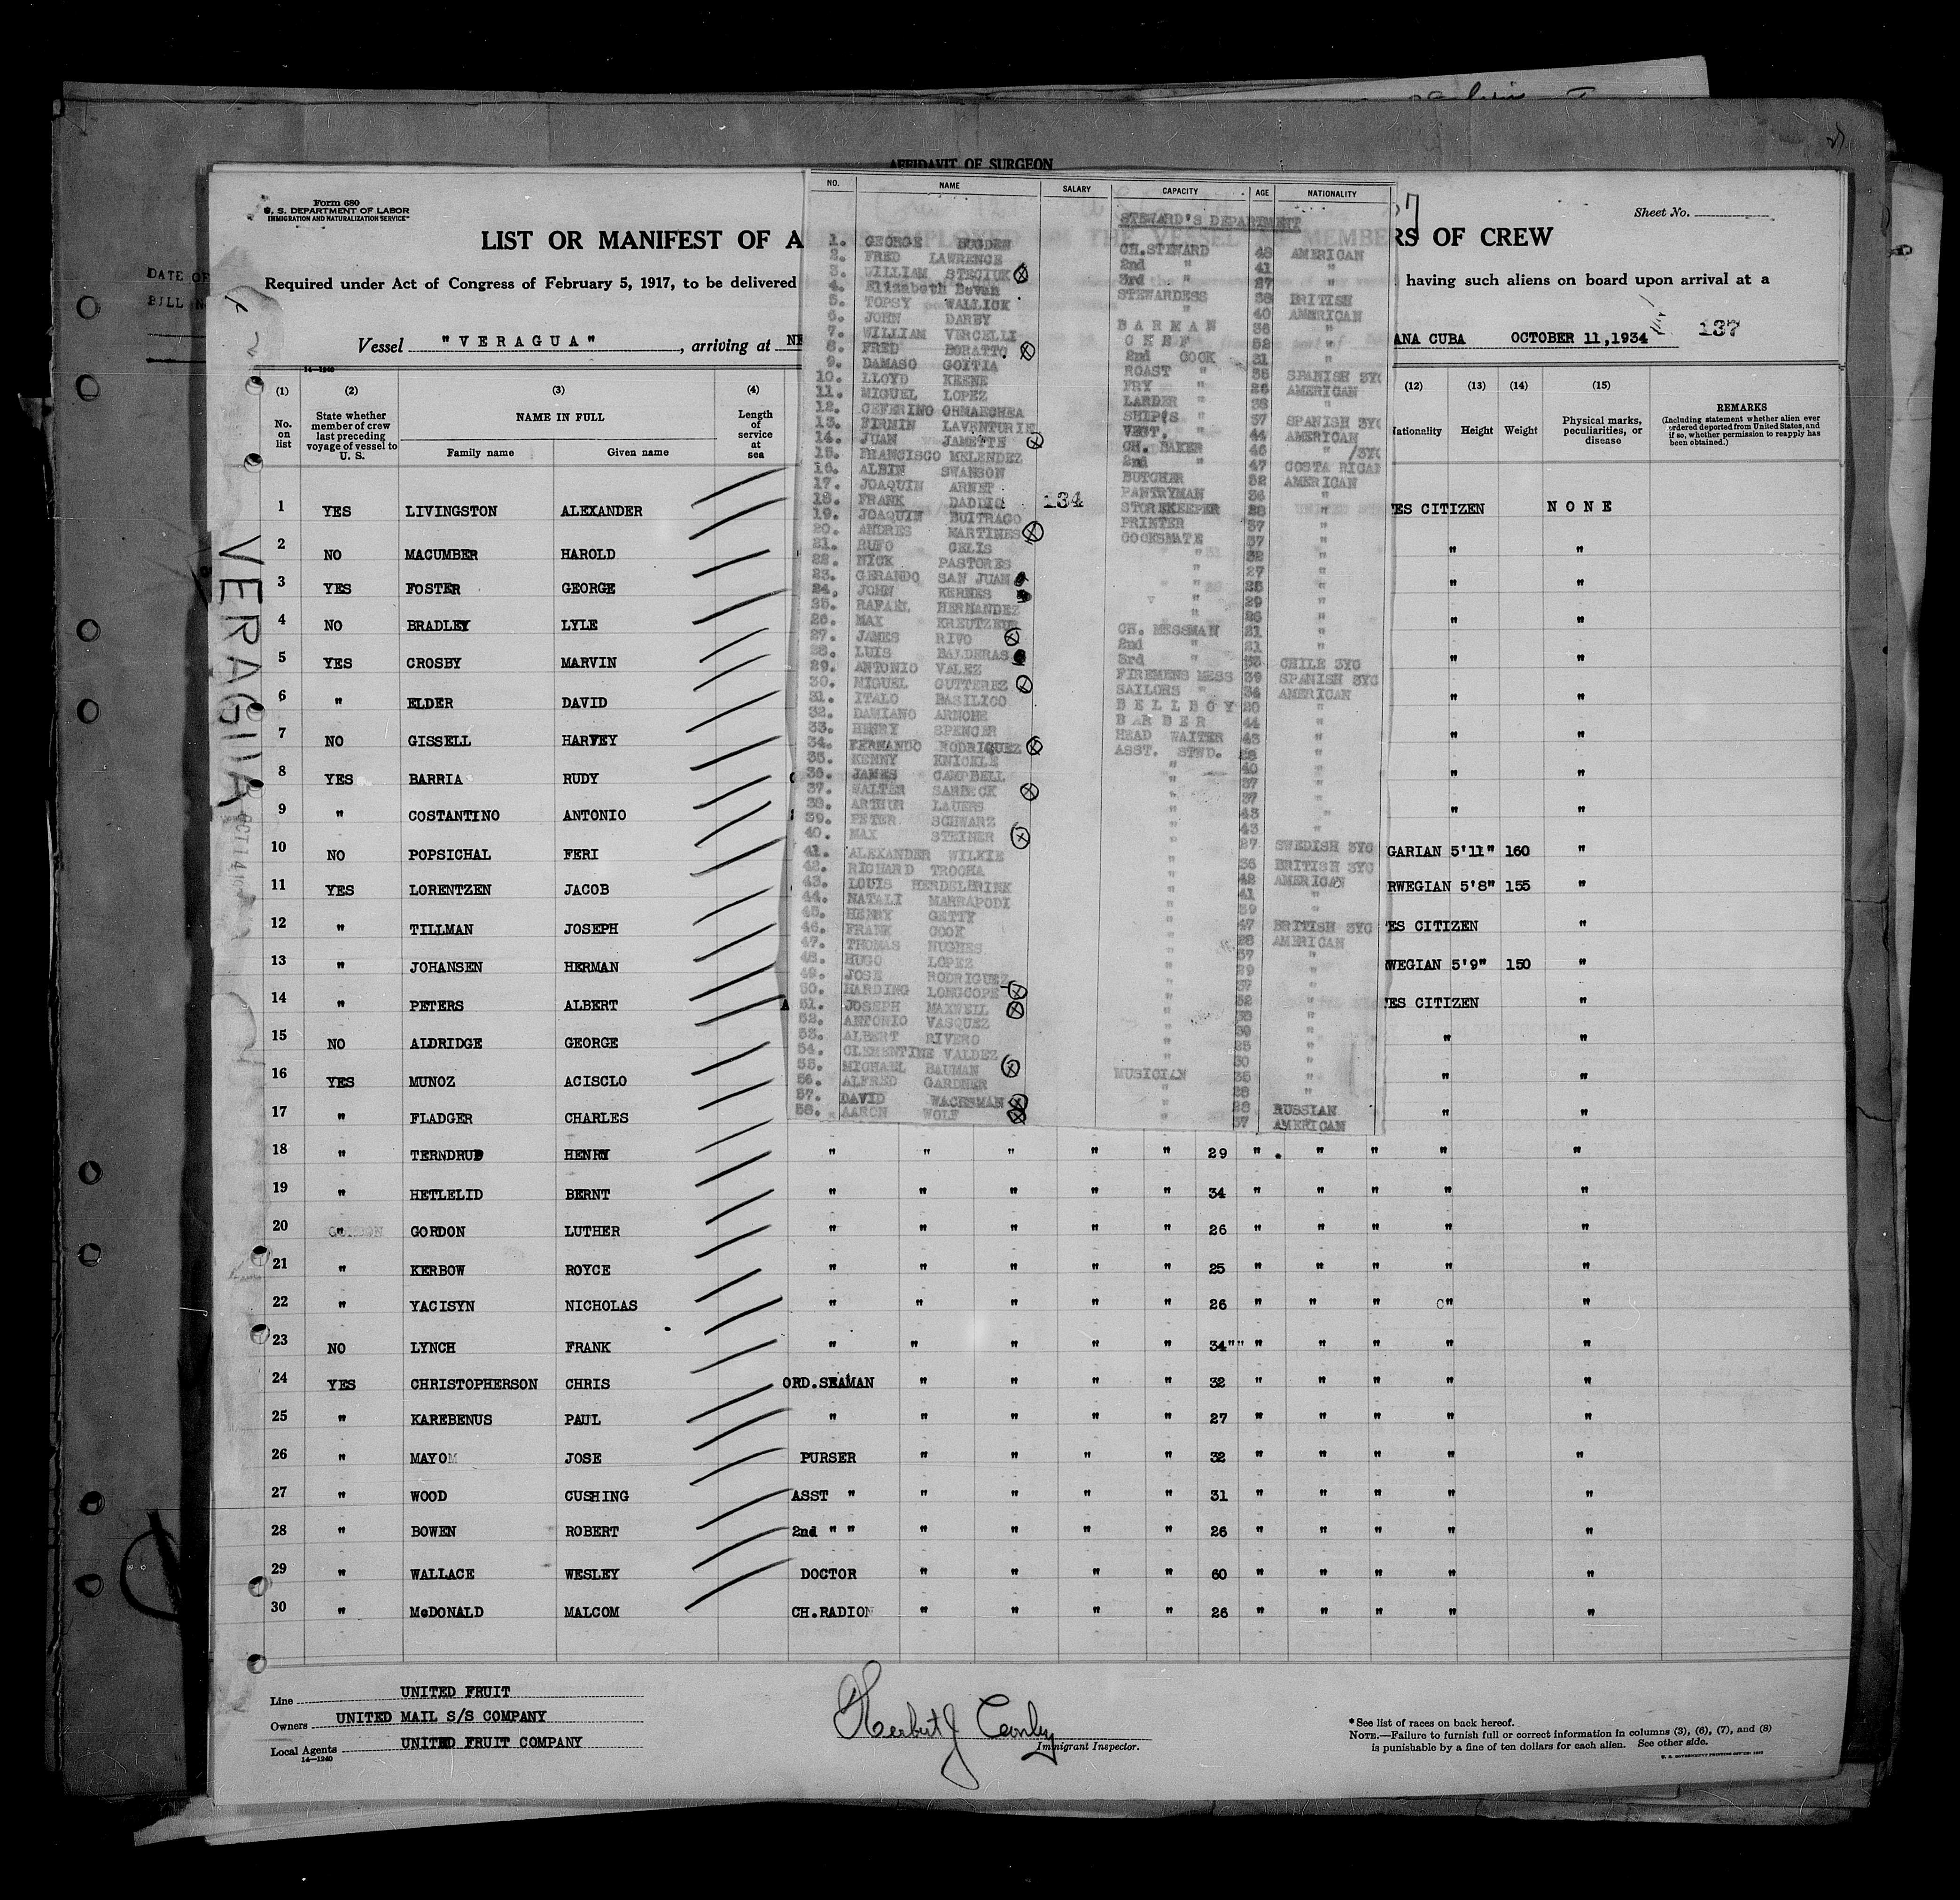 AFFIDAVIT OF SURGEON
Form 680
U. S. DEPARTMENT OF LABOR
IMMIGRATION AND NATURALIZATION SERVICE
Sheet No.
LIST OR MANIFEST OF A
RS OF CREW
Required under Act of Congress of February 5, 1917, to be delivered
having such aliens on board upon arrival at a
DATE OF
BILL
Vessel "VERAGUA", arriving at NE
ANA CUBA OCTOBER 11,1934 137
14—1240
(1) (2) (3) (4) (12) (13) (14) (15)
No. on list
State whether member of crew last preceding voyage of vessel to U. S.
NAME IN FULL
Family name Given name
Length of service at sea
Nationality Height Weight
Physical marks, peculiarities, or disease
REMARKS
(Including statement whether alien ever ordered deported from United States, and if so, whether permission to reapply has been obtained.)
VERAGUA
1 YES LIVINGSTON ALEXANDER ES CITIZEN NONE
2 NO MACUMBER HAROLD " "
3 YES FOSTER GEORGE " "
4 NO BRADLEY LYLE " "
5 YES CROSBY MARVIN " "
6 " ELDER DAVID " "
7 NO GISSELL HARVEY " "
8 YES BARRIA RUDY " "
9 " COSTANTINO ANTONIO " "
10 NO POPSICHAL FERI GARIAN 5'11" 160 "
11 YES LORENTZEN JACOB RWEGIAN 5'8" 155 "
12 " TILLMAN JOSEPH ES CITIZEN "
13 " JOHANSEN HERMAN WEGIAN 5'9" 150 "
14 " PETERS ALBERT ES CITIZEN "
15 NO ALDRIDGE GEORGE " "
16 YES MUNOZ ACISCLO " "
17 " FLADGER CHARLES " "
18 " TERNDRUP HENRY " " " " " 29 " " " " "
19 " HETLELID BERNT " " " " " 34 " " " " "
20 " GORDON LUTHER " " " " " 26 " " " " "
21 " KERBOW ROYCE " " " " " 25 " " " " "
22 " YACISYN NICHOLAS " " " " " 26 " " " " "
23 NO LYNCH FRANK " " " " " 34 " " " " "
24 YES CHRISTOPHERSON CHRIS ORD.SEAMAN " " " " 32 " " " " "
25 " KAREBENUS PAUL " " " " " 27 " " " " "
26 " MAYO JOSE PURSER " " " " 32 " " " " "
27 " WOOD CUSHING ASST " " " " " 31 " " " " "
28 " BOWEN ROBERT 2nd " " " " " " 26 " " " " "
29 " WALLACE WESLEY DOCTOR " " " " 60 " " " " "
30 " McDONALD MALCOM CH.RADION " " " " 26 " " " " "
NO. NAME SALARY CAPACITY AGE NATIONALITY
STEWARD'S DEPARTMENT
1. GEORGE BUGDEN CH.STEWARD 48 AMERICAN
2. FRED LAWRENCE 2nd " 41 "
3. WILLIAM STECIUK 3rd " 27 "
4. Elizabeth Bevan STEWARDESS 38 BRITISH
5. TOPSY WALLICK " 40 AMERICAN
6. JOHN DARBY BARMAN 36 "
7. WILLIAM VERCELLI CHEF 52 "
8. FRED BORATTO 2nd COOK 31 "
9. DAMASO GOITIA ROAST " 35 SPANISH 3YG
10. LLOYD KEENE FRY " 26 AMERICAN
11. MIGUEL LOPEZ LARDER " 38 "
12. CEFERINO ORMAECHEA SHIP'S " 37 SPANISH 3YG
13. FIRMIN LAVENTURIE VEGT. " 44 AMERICAN
14. JUAN JANETTE CH. BAKER 46 " /3YG
15. FRANCISCO MELENDEZ 2nd " 47 COSTA RICAN
16. ALBIN SWANSON BUTCHER 32 AMERICAN
17. JOAQUIN ARNET PANTRYMAN 36 "
18. FRANK DADDIO 134 STOREKEEPER 28 "
19. JOAQUIN BUITRAGO PRINTER 37 "
20. ANDRES MARTINES COOKSMATE 37 "
21. RUFO CELIS " 32 "
22. NICK PASTORES " 27 "
23. GERANDO SAN JUAN " 25 "
24. JOHN KERNES " 29 "
25. RAFAEL HERNANDEZ " 26 "
26. MAX KREUTZEUR CH. MESSMAN 21 "
27. JAMES RIVO 2nd " 21 "
28. LUIS BALDERAS 3rd " 33 CHILE 3YG
29. ANTONIO VALEZ FIREMENS MESS 39 SPANISH 3YG
30. MIGUEL GUTTEREZ SAILORS " 34 AMERICAN
31. ITALO BASILICO BELLBOY 20 "
32. DAMIANO ARNONE BARBER 44 "
33. HENRY SPENCER HEAD WAITER 43 "
34. FERNANDO RODRIQUEZ ASST. STWD. 28 "
35. KENNY KNICKLE " 40 "
36. JAMES CAMPBELL " 37 "
37. WALTER SARBECK " 37 "
38. ARTHUR LAUERS " 43 "
39. PETER SCHWARZ " 43 "
40. MAX STEINER " 27 SWEDISH 3YG
41. ALEXANDER WILKIE " 36 BRITISH 3YG
42. RICHARD TROCHA " 42 AMERICAN
43. LOUIS HERDELBRINK " 41 "
44. NATALI MARRAPODI " 39 "
45. HENRY GETTY " 47 BRITISH 3YG
46. FRANK COOK " 28 AMERICAN
47. THOMAS HUGHES " 37 "
48. HUGO LOPEZ " 29 "
49. JOSE RODRIGUEZ " 37 "
50. HARDING LONGCOPE " 32 "
51. JOSEPH MAXWELL " 38 "
52. ANTONIO VASQUEZ " 30 "
53. ALBERT RIVERO " 25 "
54. CLEMENTINE VALDEZ " 30 "
55. MICHAEL BAUMAN MUSICIAN 35 "
56. ALFRED GARDNER " 28 "
57. DAVID WACHSMAN " 28 RUSSIAN
58. AARON WOLF " 37 AMERICAN
Line UNITED FRUIT
Owners UNITED MAIL S/S COMPANY
Local Agents UNITED FRUIT COMPANY
14—1240
Herbert J
Immigrant Inspector.
*See list of races on back hereof.
NOTE.—Failure to furnish full or correct information in columns (3), (6), (7), and (8)
is punishable by a fine of ten dollars for each alien. See other side.